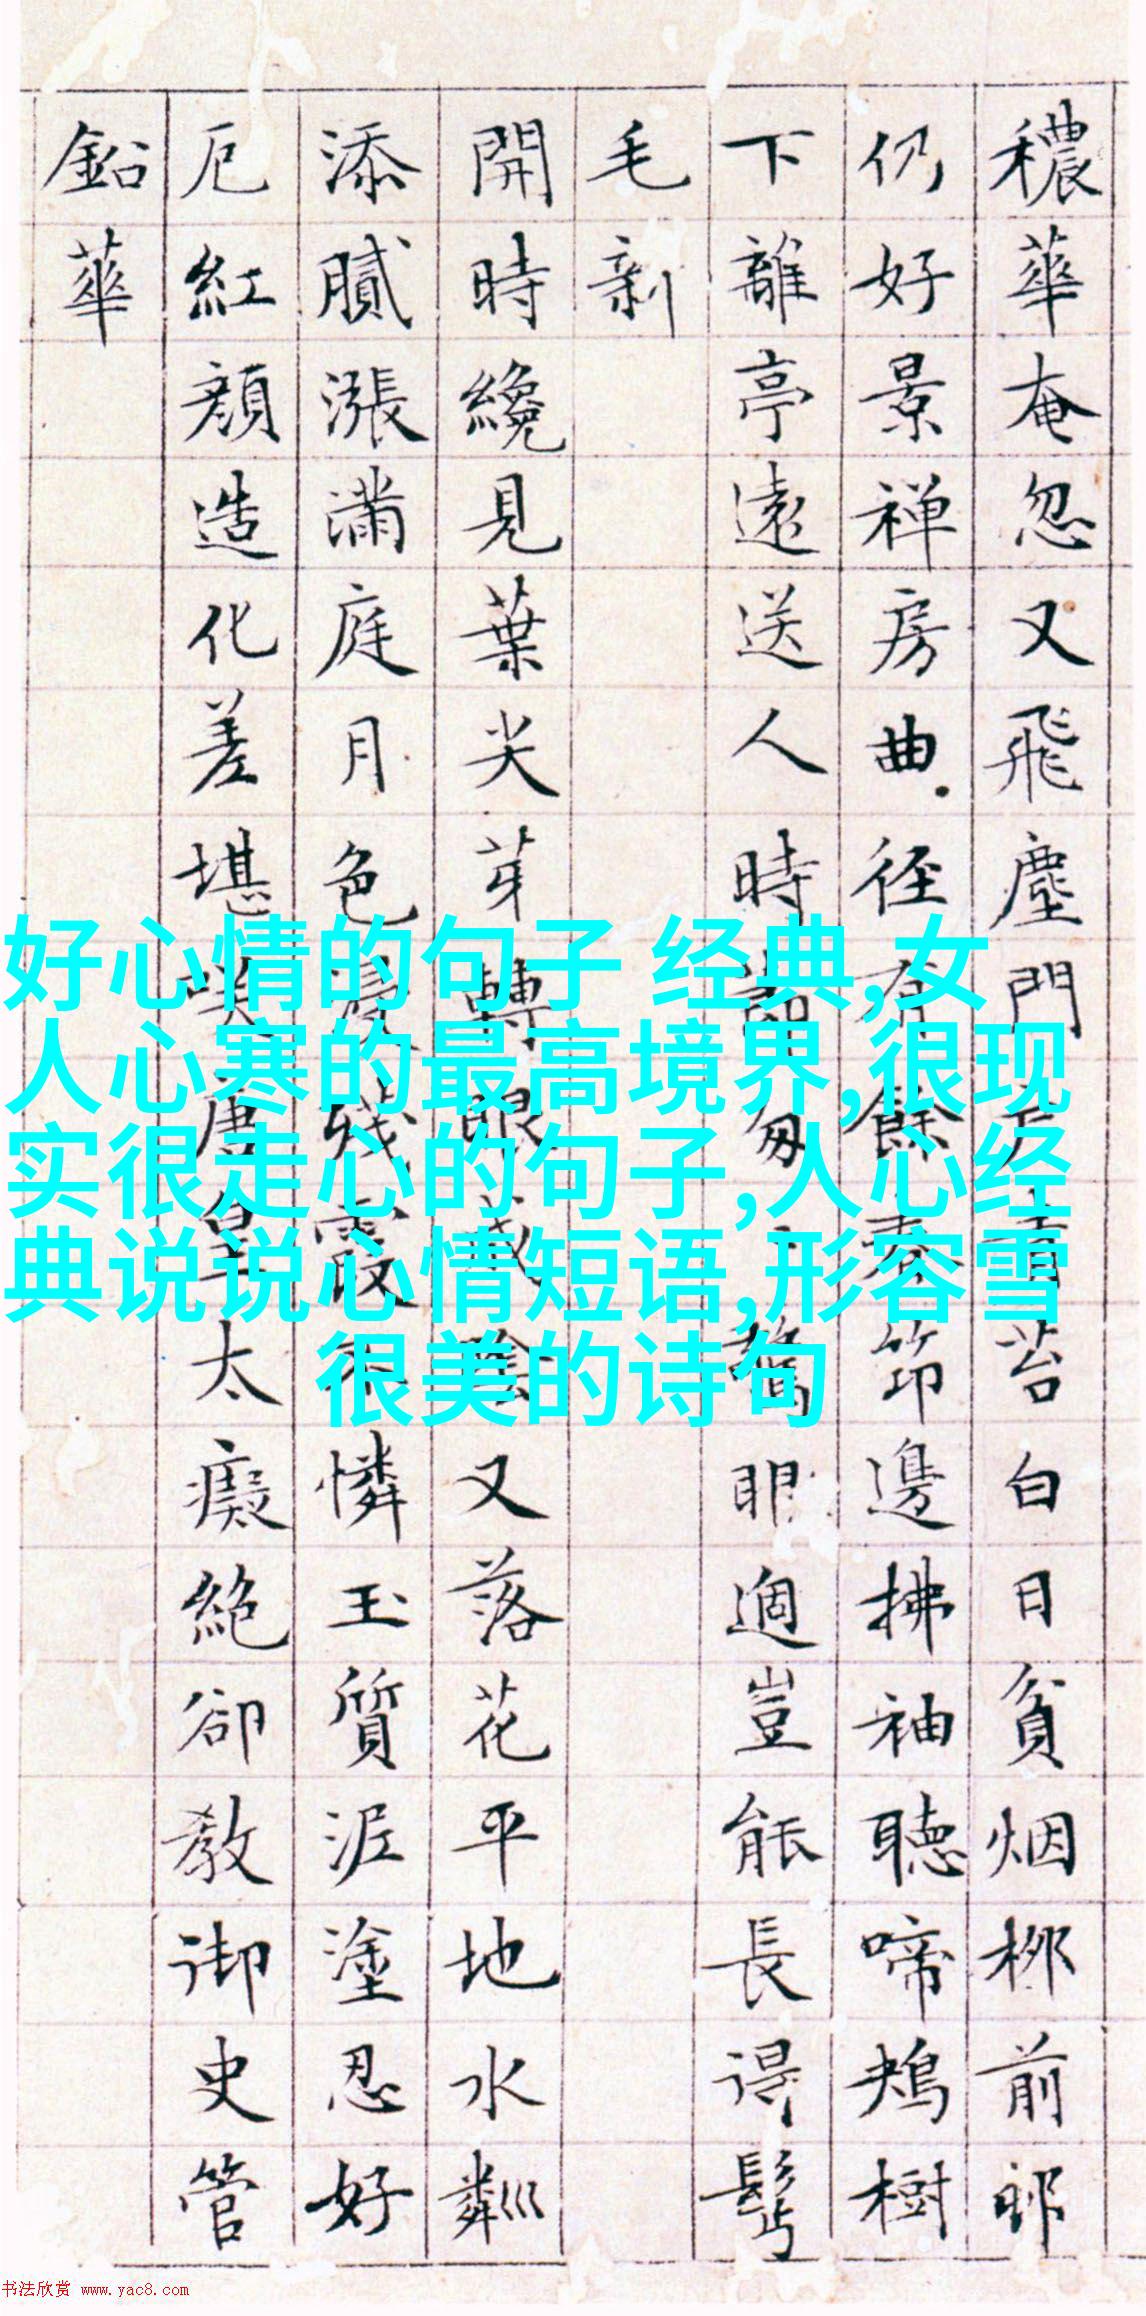 穠華奄忽又飛塵門青苔白日貧烟柳前郎
仍好景禅房曲径有餘春筇邊拂袖聽啼鴂樹
下離亭遠送人時節匆匆驚眼過豈能長得鬢
毛新
開時纔見葉尖芽轉眼成陰又落花平地水粼
添膩漲滿庭月色殘霞不憐玉質泥塗忍好
厄紅顏造化差堪嘆唐皇太癡絕卻教御史管
鉛華
好心情的句子 经典,女
人心寒的最高境界,很现
实很走心的句子,人心经
典说说心情短语,形容雪
很美的诗句
书法欣赏 www.yac8.com